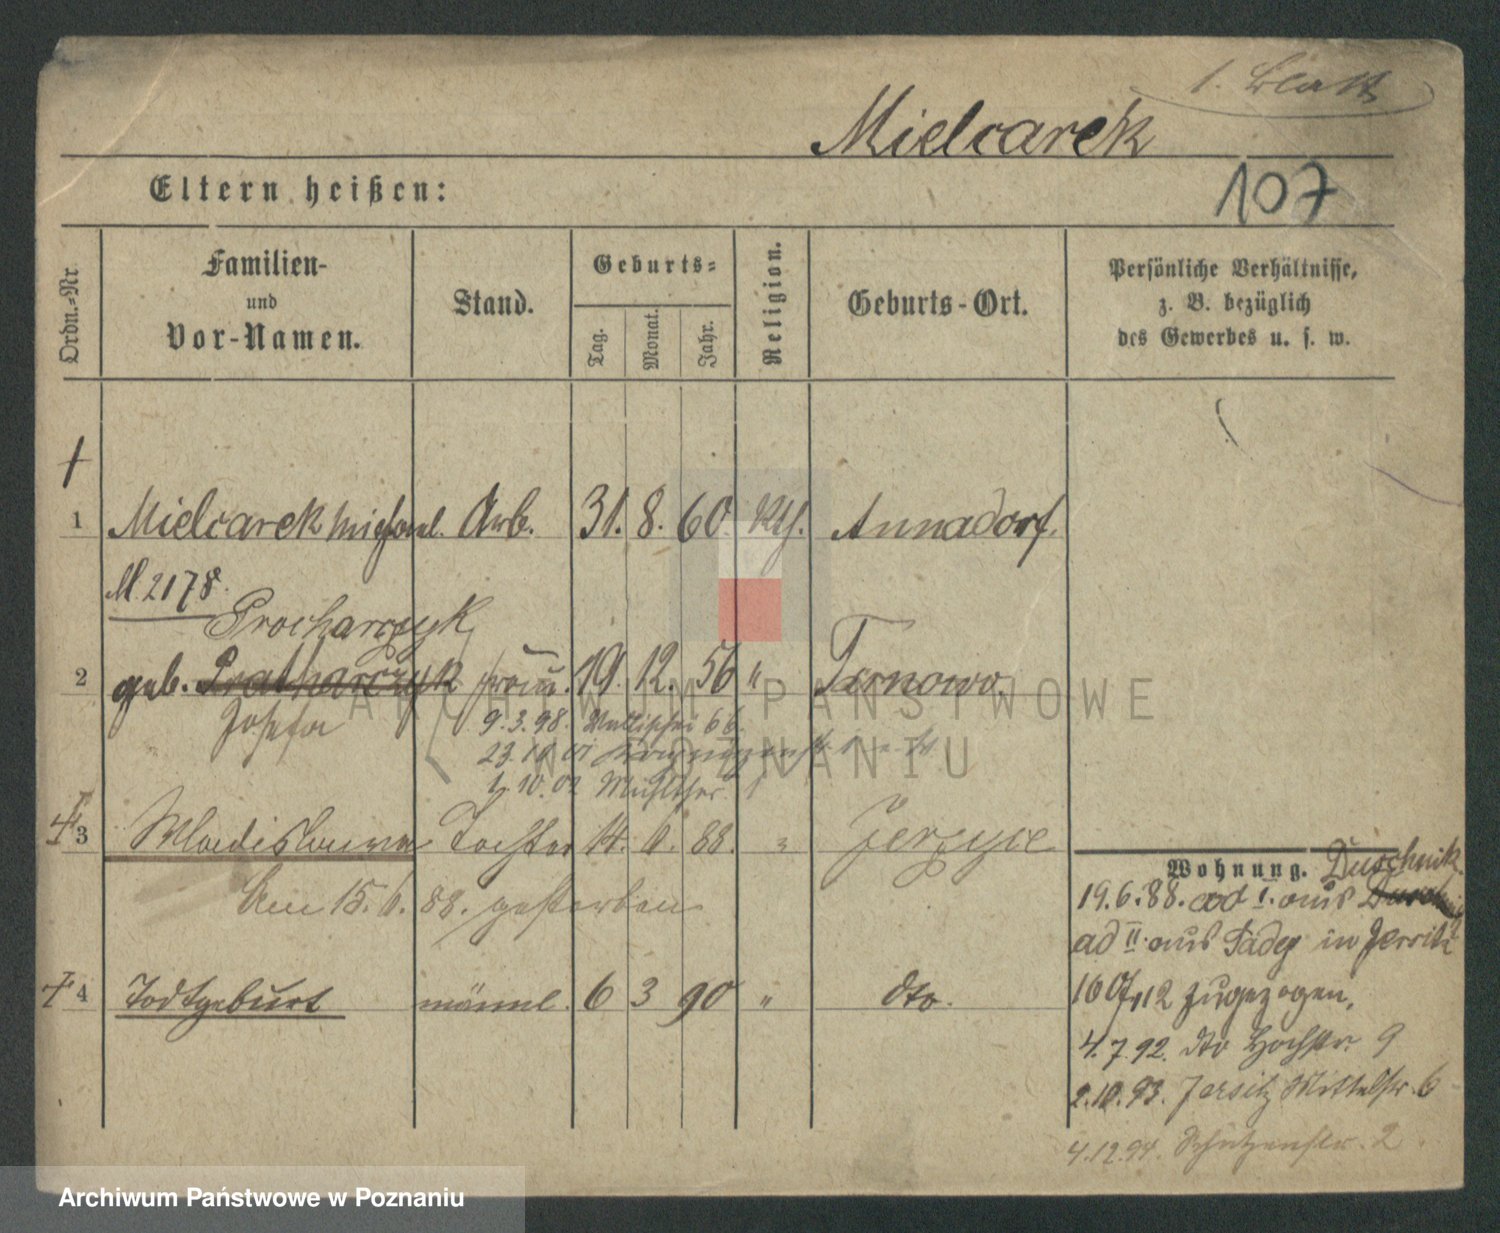 1. Blatt
Mielcarek
Eltern heißen:
107
Ordn.-Nr.
Familien-
und
Vor-Namen.
Stand.
Geburts-
Tag.
Monat.
Jahr.
Religion.
Geburts-Ort.
Persönliche Verhältnisse,
z. B. bezüglich
des Gewerbes u. s. w.
1 Mielcarek Michael. Arb. 31. 8. 60. kth. Annadorf.
M. 2178.
Procharczyk
2 geb. Pratharczyk Frau. 19. 12. 56 " Tarnowo.
Josefa
9.3.98. Wallischei 66.
23.10.01
1.10.02 Mühlthor
3 Wladislawa Tochter 14. 6. 88. " Jerzyce
Am 15. 6. 88. gestorben
4 Todtgeburt männl. 6 3 90 " dto.
Wohnung. Duschnik
19.6.88. ad I. aus
ad II aus in Jersitz
zugezogen.
4.7.92. dto Hochstr. 9
2.10.93. Jersitz Mittelstr. 6
4.12.94. Schützenstr. 2
ARCHIWUM PAŃSTWOWE
W POZNANIU
Archiwum Państwowe w Poznaniu